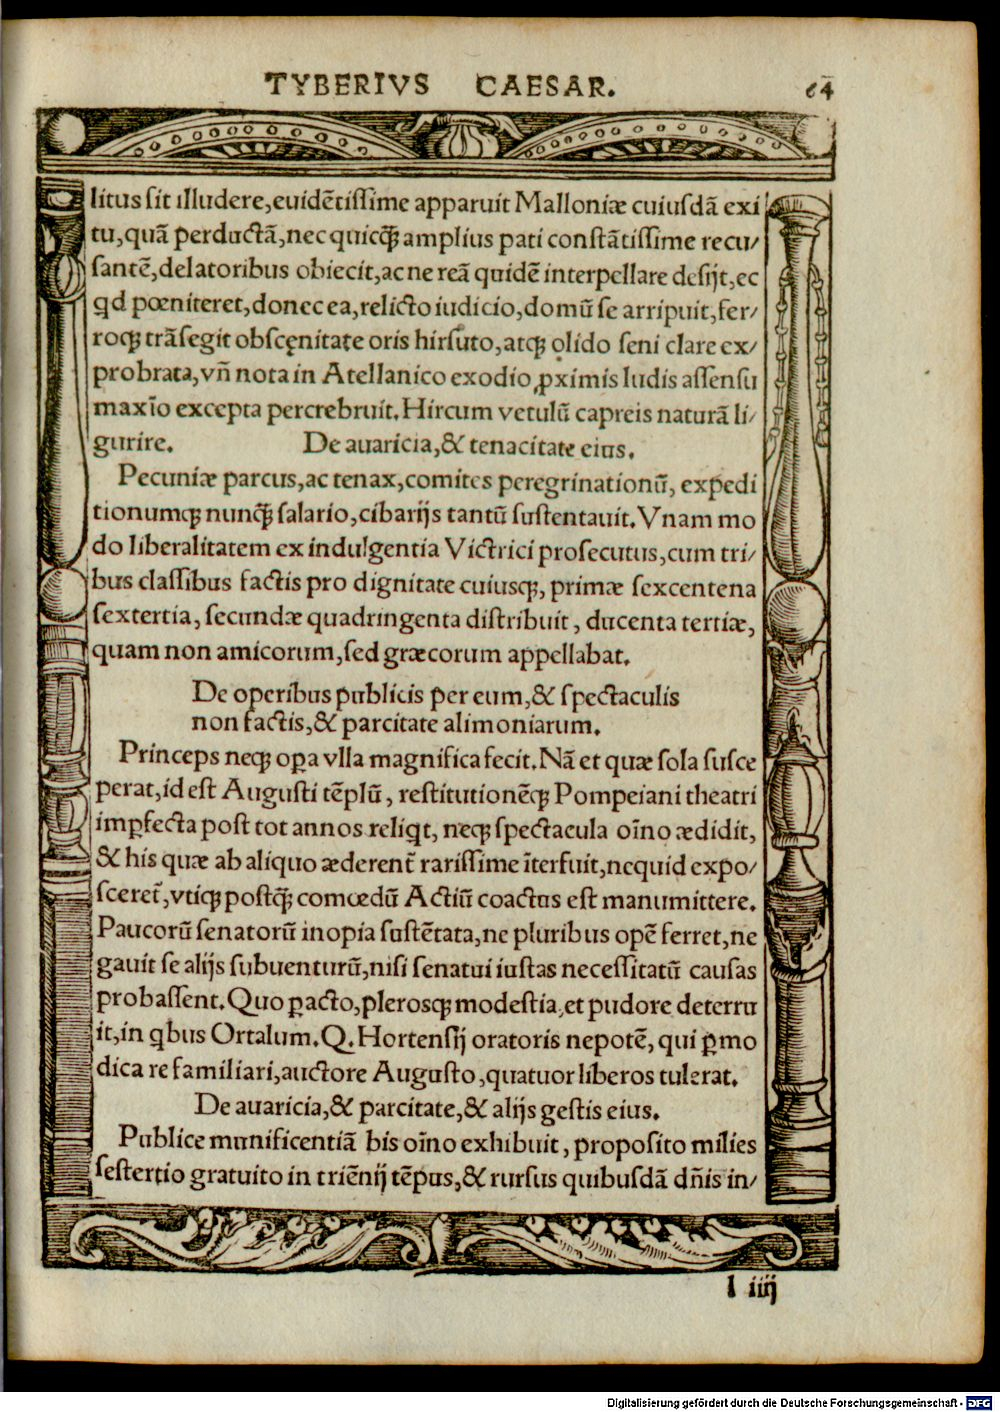 TYBERIVS CAESAR. 64
litus sit illudere,euidētissime apparuit Malloniæ cuiusdā exi
tu,quā perductā,nec quicq̄ꝫ amplius pati constātissime recu/
santē,delatoribus obiecit,ac ne reā quidē interpellare desijt,ec
qd pœniteret,donec ea,relicto iudicio,domū se arripuit,fer/
roqꝫ trāsegit obscęnitate oris hirsuto,atqꝫ olido seni clare ex/
probrata,vñ nota in Atellanico exodio ꝓximis ludis assensu
maxīo excepta percrebruit.Hircum vetulū capreis naturā li/
gurire. De auaricia,& tenacitate eius.
Pecuniæ parcus,ac tenax,comites peregrinationū, expedi
tionumqꝫ nunq̄ꝫ salario,cibarijs tantū sustentauit.Vnam mo
do liberalitatem ex indulgentia Victrici prosecutus,cum tri/
bus classibus factis pro dignitate cuiusqꝫ, primæ sexcentena
sextertia, secundæ quadringenta distribuit, ducenta tertiæ,
quam non amicorum,sed græcorum appellabat.
De operibus publicis per eum,& spectaculis
non factis,& parcitate alimoniarum.
Princeps neqꝫ oꝑa vlla magnifica fecit.Nā et quæ sola susce
perat,id est Augusti tēplū, restitutionēqꝫ Pompeiani theatri
imꝑfecta post tot annos reliqt, neqꝫ spectacula oīno ædidit,
& his quæ ab aliquo æderent̄ rarissime īterfuit,nequid expo/
sceret̄,vtiqꝫ postq̄ꝫ comœdū Actiū coactus est manumittere.
Paucorū senatorū inopia sustētata,ne pluribus opē ferret,ne
gauit se alijs subuenturū,nisi senatui iustas necessitatū causas
probassent.Quo ꝑacto,plerosqꝫ modestia,et pudore deterru
it,in qbus Ortalum.Q.Hortensij oratoris nepotē, qui ꝑmo
dica re familiari,auctore Augusto,quatuor liberos tulerat.
De auaricia,& parcitate,& alijs gestis eius.
Publice munificentiā bis oīno exhibuit, proposito milies
sestertio gratuito in triēnij tēpus,& rursus quibusdā dñis in/
l iiij
Digitalisierung gefördert durch die Deutsche Forschungsgemeinschaft - DFG